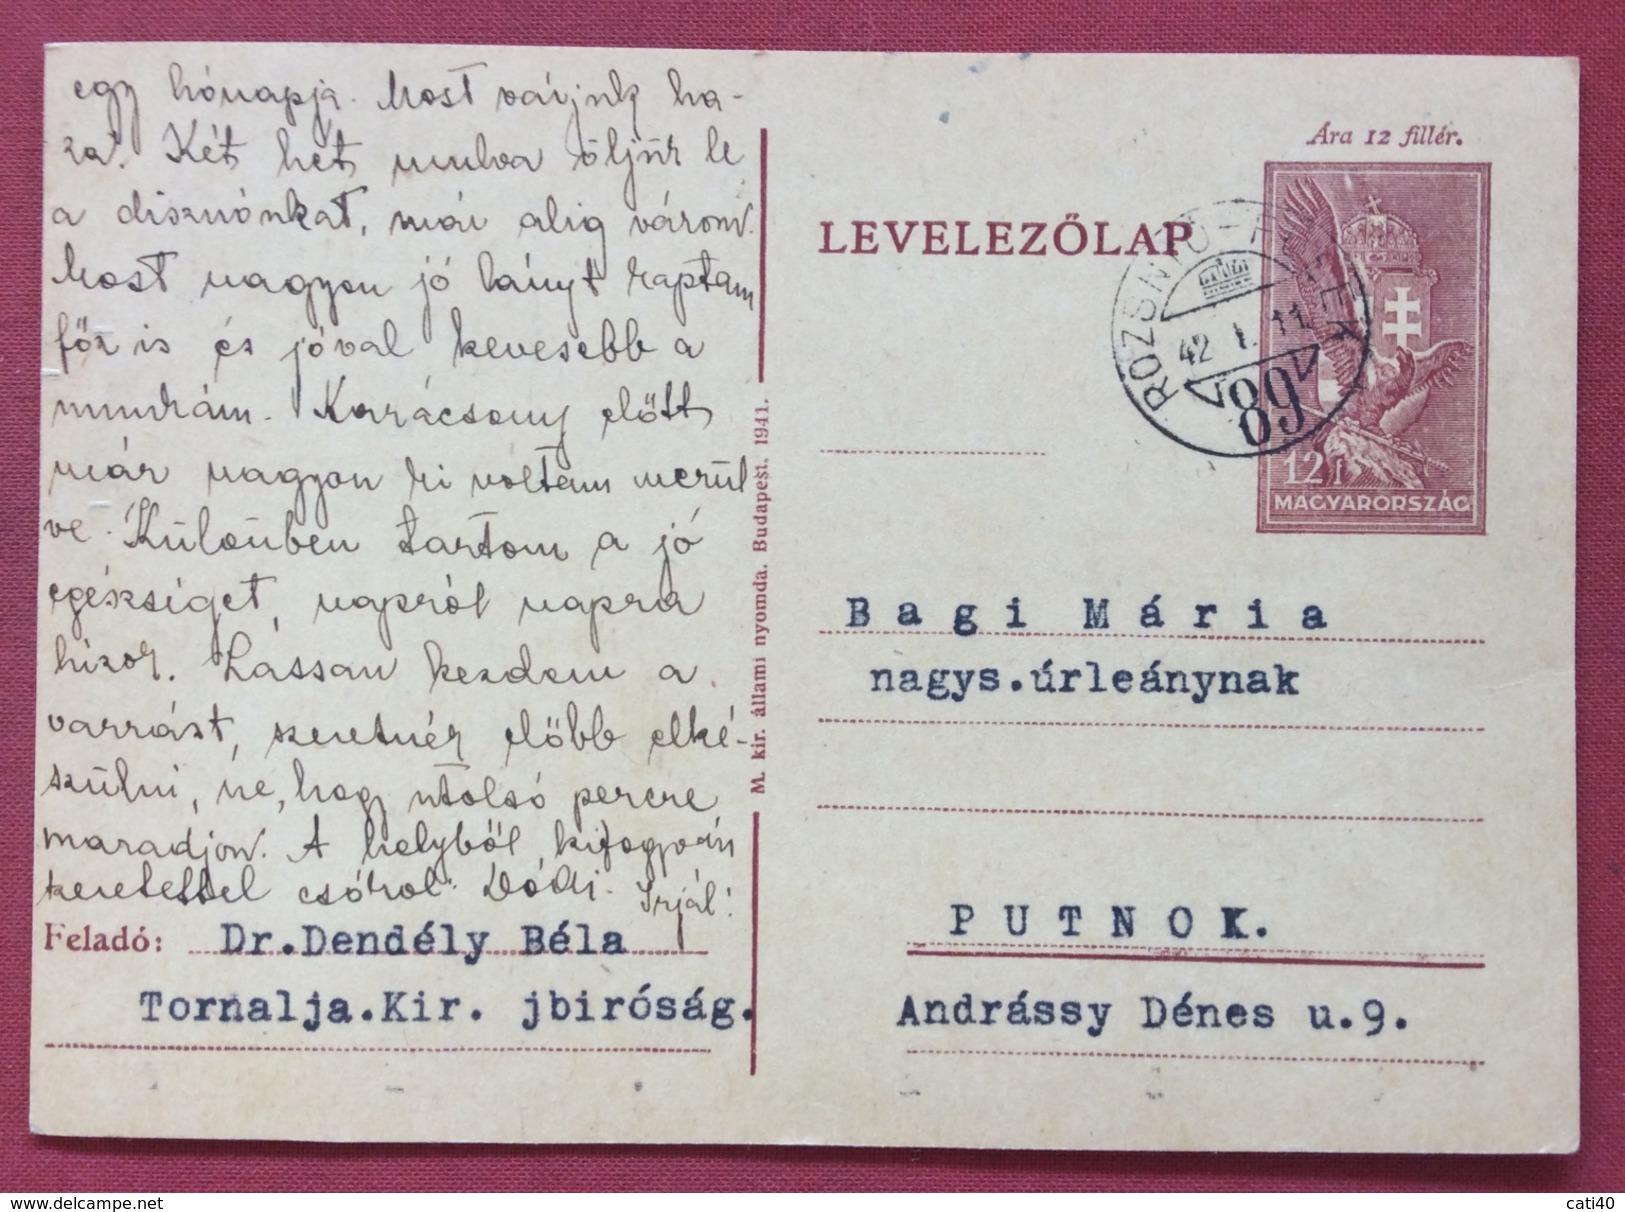 egy hónapja. Most várjuk ha-
za. Két hét mulva öljük le
a disznónkat, már alig várom.
Most nagyon jó lányt kaptam
főz is és jóval kevesebb a
munkám. Karácsony előtt
már nagyon ki voltam merül
ve. Külömben tartom a jó
egészséget, napról napra
hízok. Lassan kezdem a
varrást, szeretnék előbb elké-
szülni, ne, hogy utolsó percre
maradjon. A helyből kifogyván
szeretettel csókol: Dódi. Irjál!
Feladó: Dr.Dendély Béla
Tornalja.Kir. jbiróság.
M. kir. állami nyomda. Budapest. 1941.
Ára 12 fillér.
LEVELEZŐLAP
ROZSNYÓ
42 I. 11.
89
12 f
MAGYARORSZÁG
Bagi Mária
nagys.úrleánynak
PUTNOK.
Andrássy Dénes u.9.
cati40